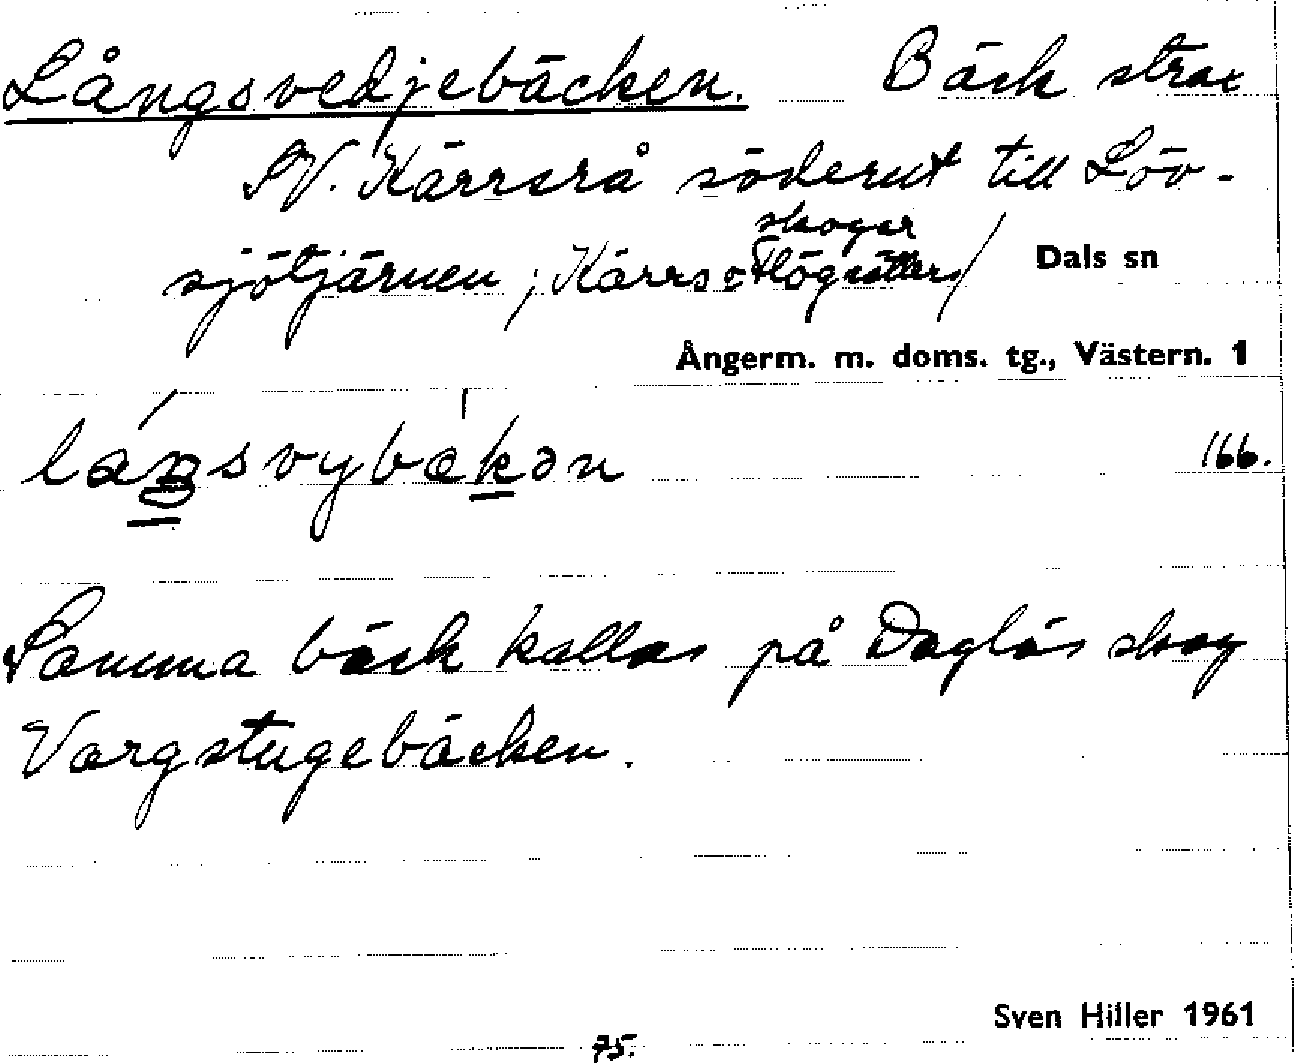 Långsvedjebäcken. Bäck strax
SV. Kärrsrå söderut till Löv-
skogar
sjötjärnen, Kärrs o Flögsätters
Dals sn
Ångerm. m. doms. tg., Västern. 1
166.
Samma bäck kallas på Daglös skog
Vargstugebäcken.
Sven Hiller 1961
75.